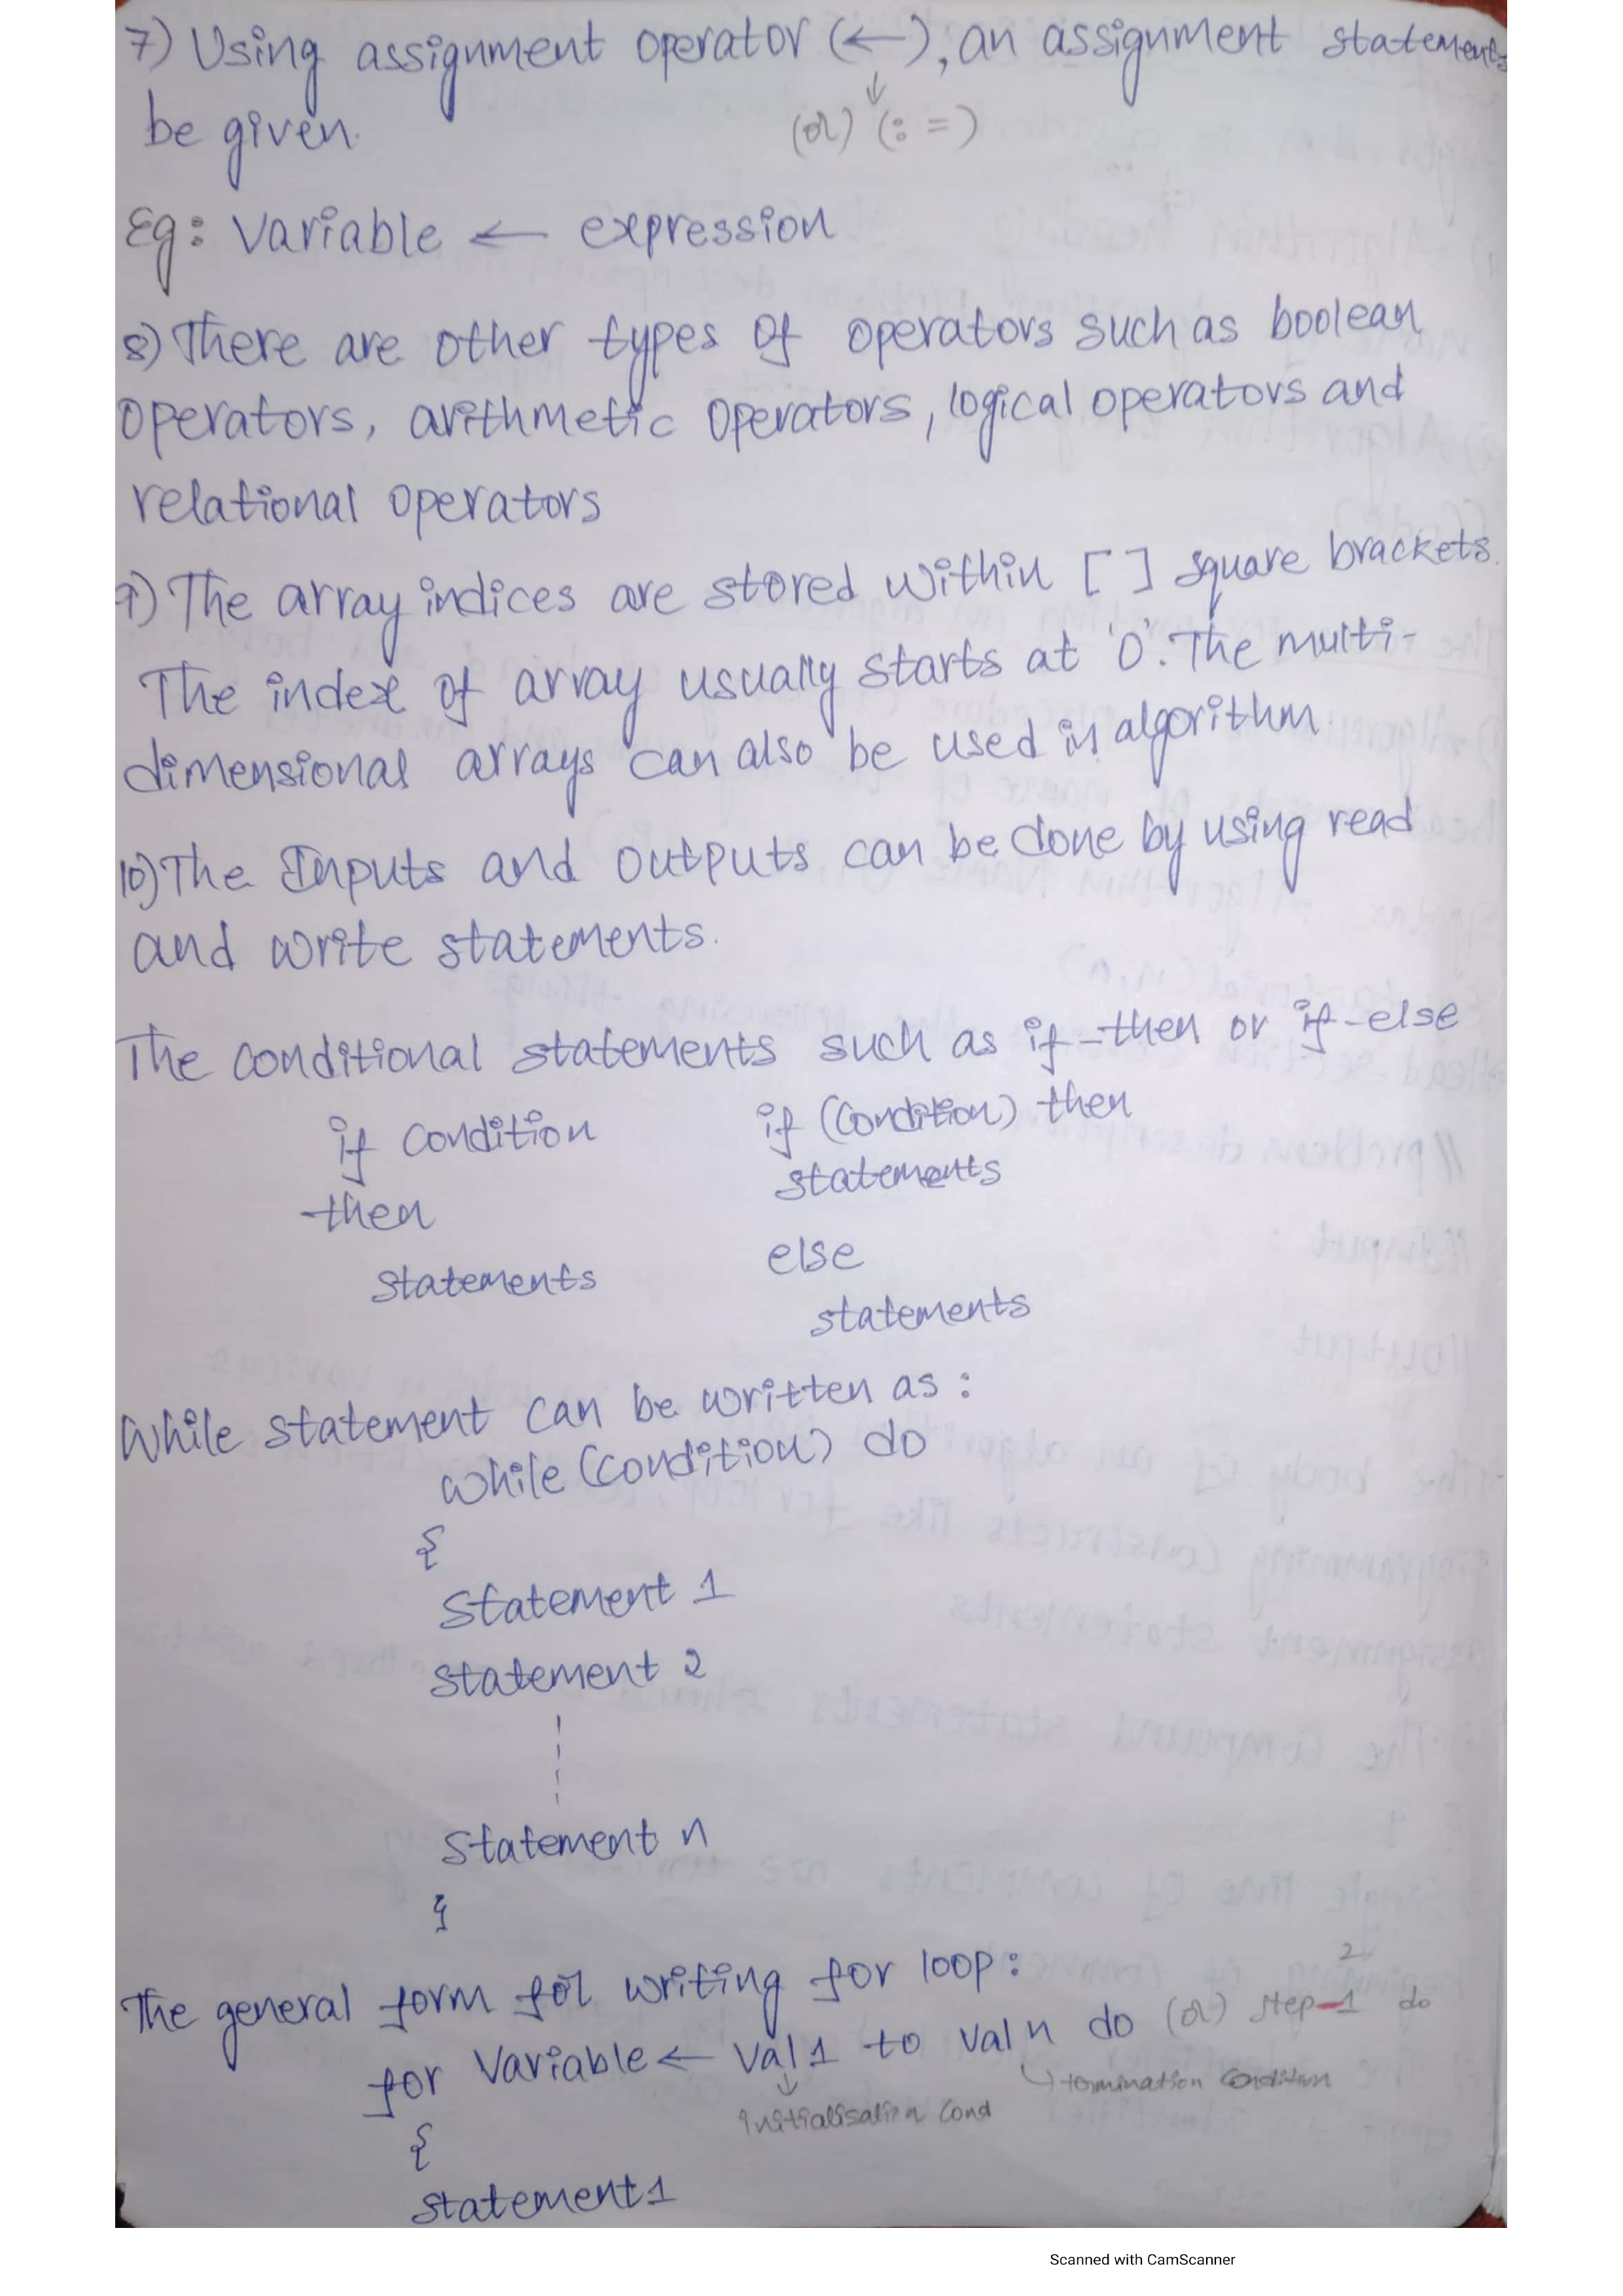 7) Using assignment operator (←), an assignment statement
be given.
(or) (: =)
Eg: Variable ← expression
8) There are other types of operators such as boolean
operators, arithmetic operators, logical operators and
relational operators
9) The array indices are stored within [ ] square brackets.
The index of array usually starts at '0'. The multi-
dimensional arrays can also be used in algorithm.
10) The Inputs and outputs can be done by using read
and write statements.
The conditional statements such as if-then or if-else
if condition
then
statements
if (condition) then
statements
else
statements
While statement can be written as :
while (condition) do
{
Statement 1
statement 2
Statement n
}
The general form for writing for loop :
for variable ← val 1 to val n do (or) step-1 do
2
initialisation cond
termination condition
{
statement 1
Scanned with CamScanner